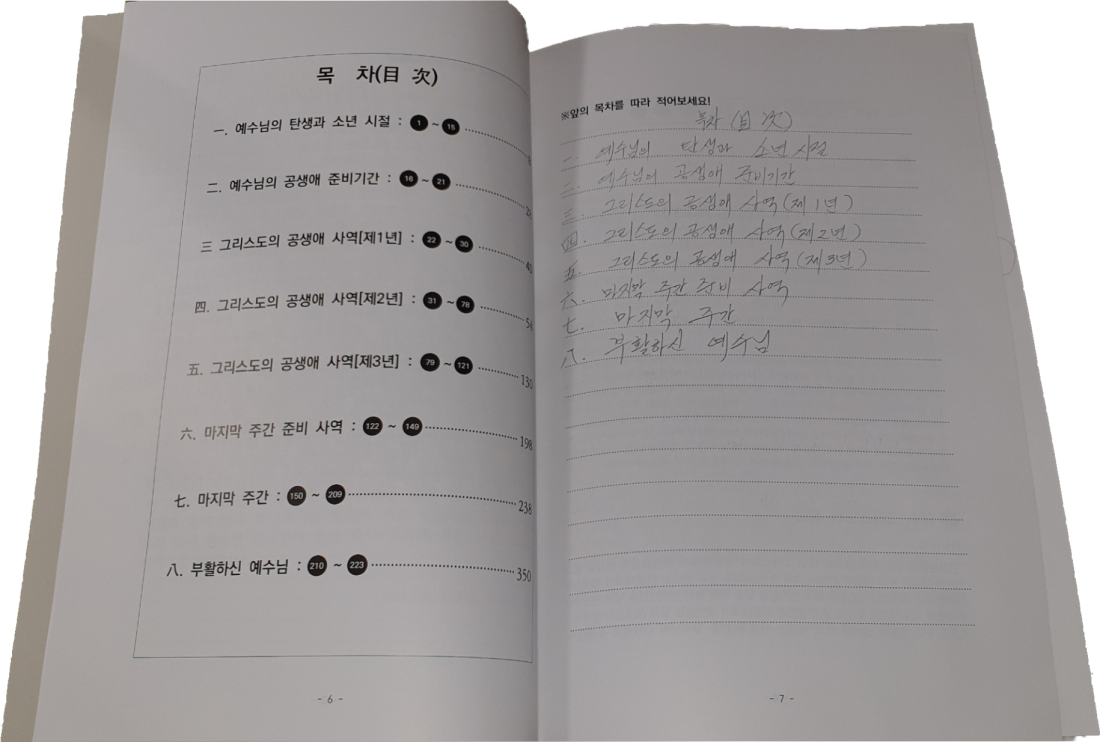 목 차(目 次)
一. 예수님의 탄생과 소년 시절 : 1 ~ 15
二. 예수님의 공생애 준비기간 : 16 ~ 21
三 그리스도의 공생애 사역[제1년] : 22 ~ 30 40
四. 그리스도의 공생애 사역[제2년] : 31 ~ 78 54
五. 그리스도의 공생애 사역[제3년] : 79 ~ 121 130
六. 마지막 주간 준비 사역 : 122 ~ 149 198
七. 마지막 주간 : 150 ~ 209 238
八. 부활하신 예수님 : 210 ~ 223 350
- 6 -
※앞의 목차를 따라 적어보세요!
목차 (目 次)
一. 예수님의 탄생과 소년 시절
二. 예수님의 공생애 준비기간
三. 그리스도의 공생애 사역(제1년)
四. 그리스도의 공생애 사역(제2년)
五. 그리스도의 공생애 사역(제3년)
六. 마지막 주간 준비 사역
七. 마지막 주간
八. 부활하신 예수님
- 7 -